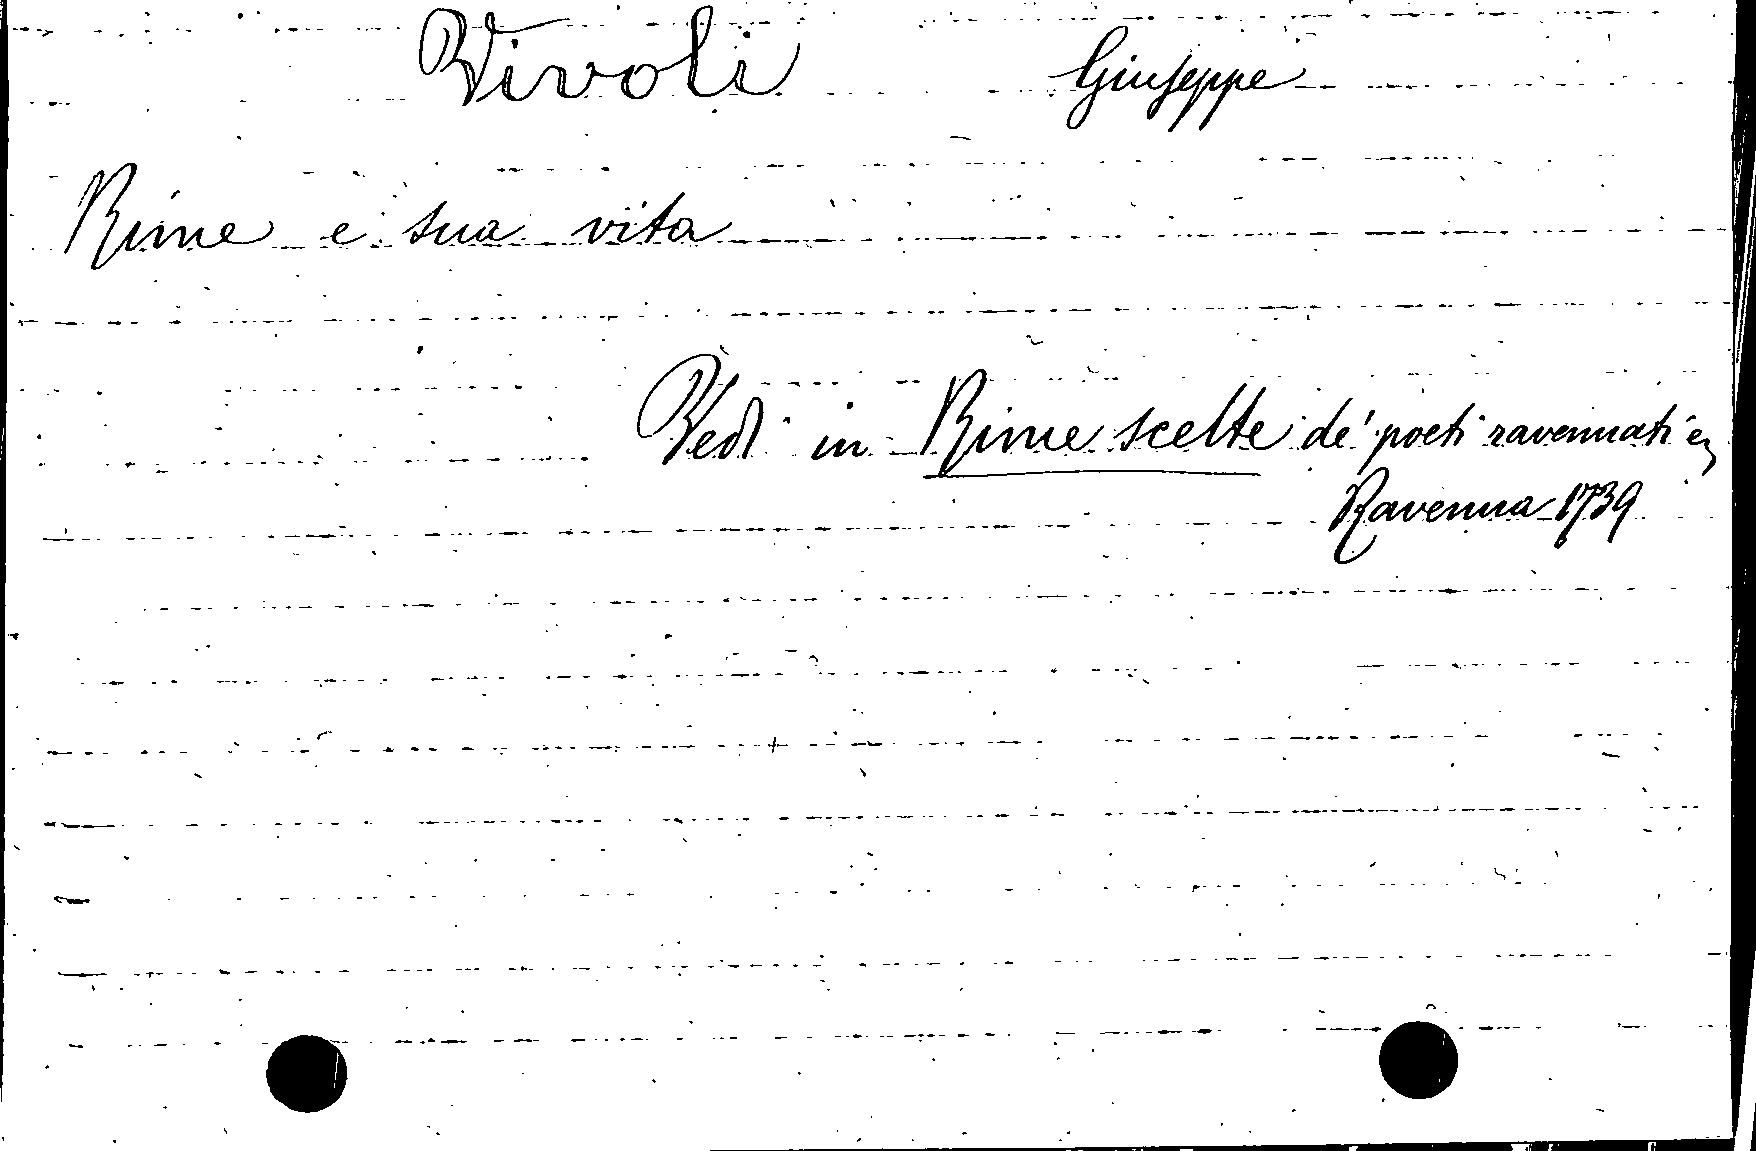 Vivoli Giuseppe
Rime e sua vita
Vedi in Rime scelte de' poeti ravennati
Ravenna 1739